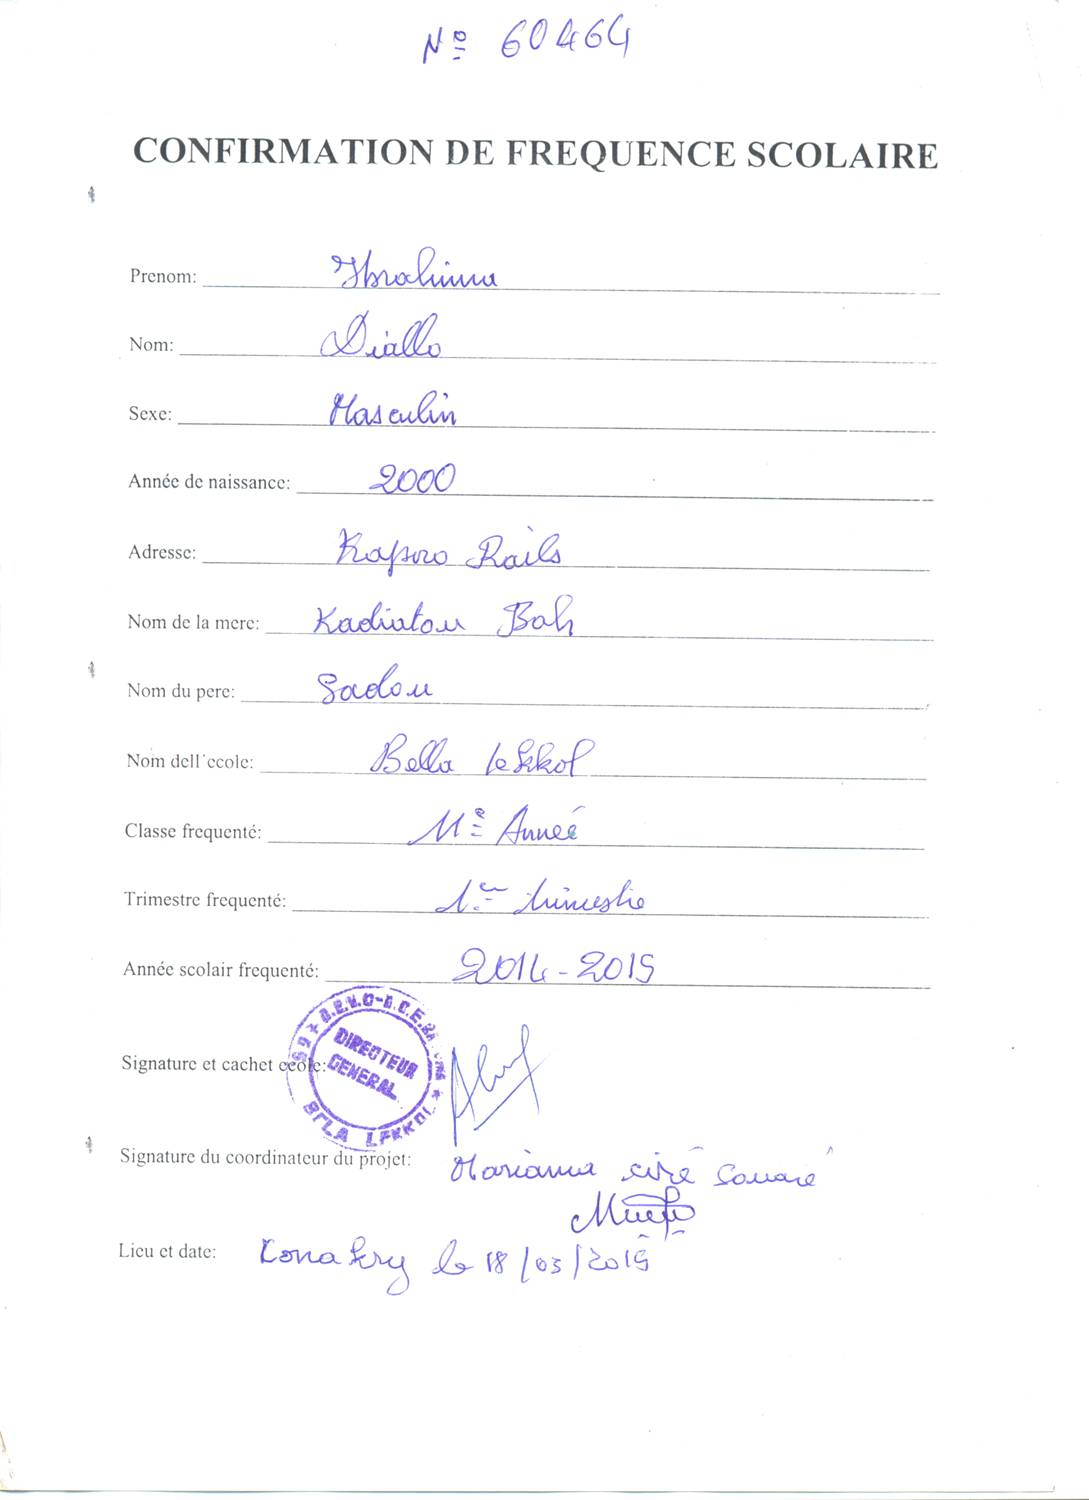 Nº 60464
CONFIRMATION DE FREQUENCE SCOLAIRE
Prenom: Ibrahima
Nom: Diallo
Sexe: Masculin
Année de naissance: 2000
Adresse: Kaporo Rails
Nom de la mere: Kadiatou Bah
Nom du pere: Sadou
Nom dell'ecole: Bella leKkol
Classe frequenté: 11e Anneé
Trimestre frequenté: 1er trimestre
Année scolair frequenté: 2014-2015
Signature et cachet ecole:
DIRECTEUR
GENERAL
Signature du coordinateur du projet: Mariama ciré Soumaré
Lieu et date: Conakry le 18/03/2015